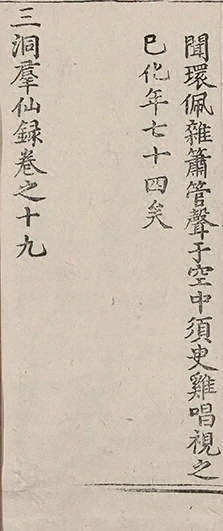 聞環佩雜簫管聲于空中須臾雞唱視之
已化年七十四矣
三洞羣仙録卷之十九